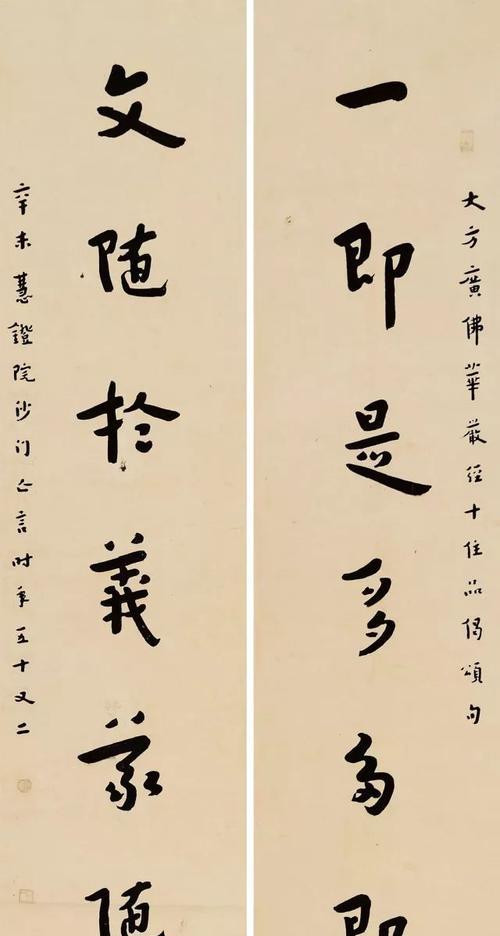 大方廣佛華嚴經十住品偈頌句
一即是多多即
文随扵義義随
辛未慧鐙院沙门亡言时年五十又二